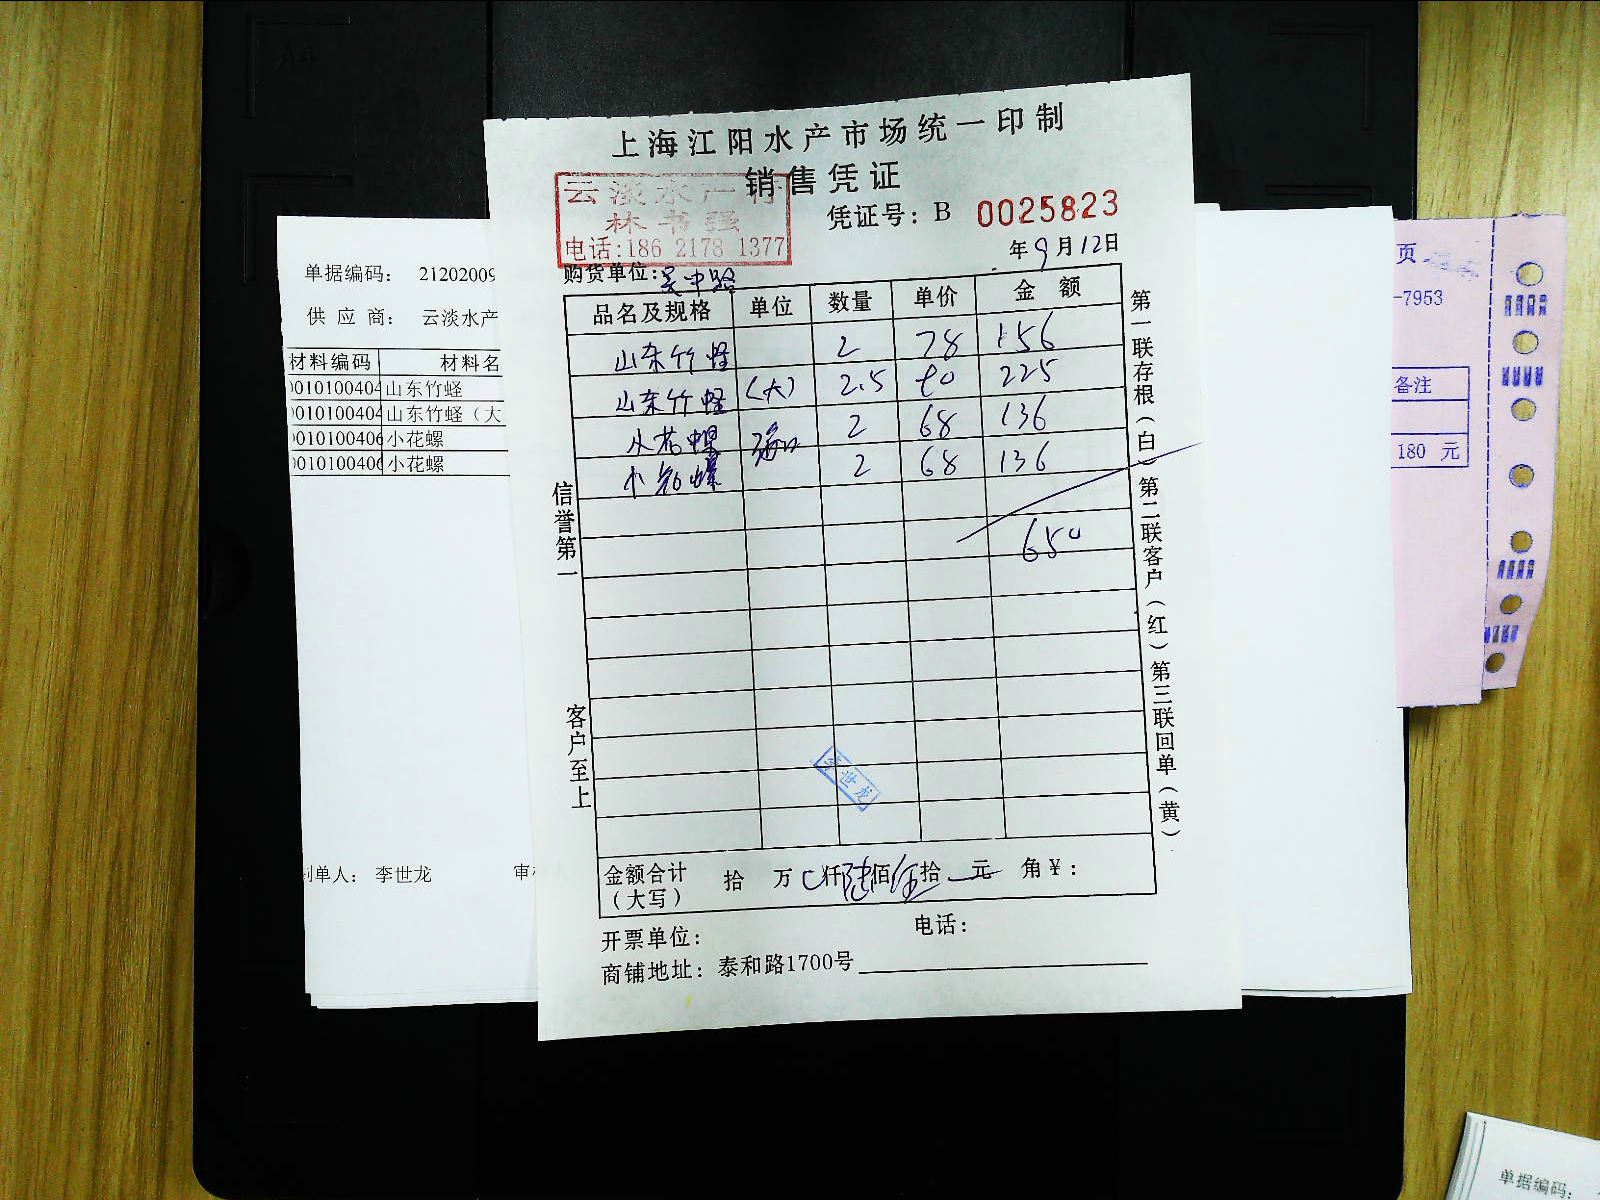 上海江阳水产市场统一印制
销售凭证
云淡水产行
林书强
电话:186 2178 1377
凭证号：B 0025823
年9月12日
购货单位:吴中路
品名及规格 单位 数量 单价 金 额
山东竹蛏 2 78 156
山东竹蛏 (大) 2.5 90 225
小花螺 2 68 136
小花螺 2 68 136
650
信誉第一
客户至上
第一联存根(白)第二联客户(红)第三联回单(黄)
李世龙
金额合计 拾 万 仟陆佰伍拾 元 角¥：
(大写)
开票单位：
电话：
商铺地址：泰和路1700号
单据编码： 21202009
供 应 商： 云淡水产
材料编码 材料名
010100404 山东竹蛏
010100404 山东竹蛏（大
010100406 小花螺
010100406 小花螺
制单人： 李世龙
审
页
-7953
备注
180 元
单据编码：